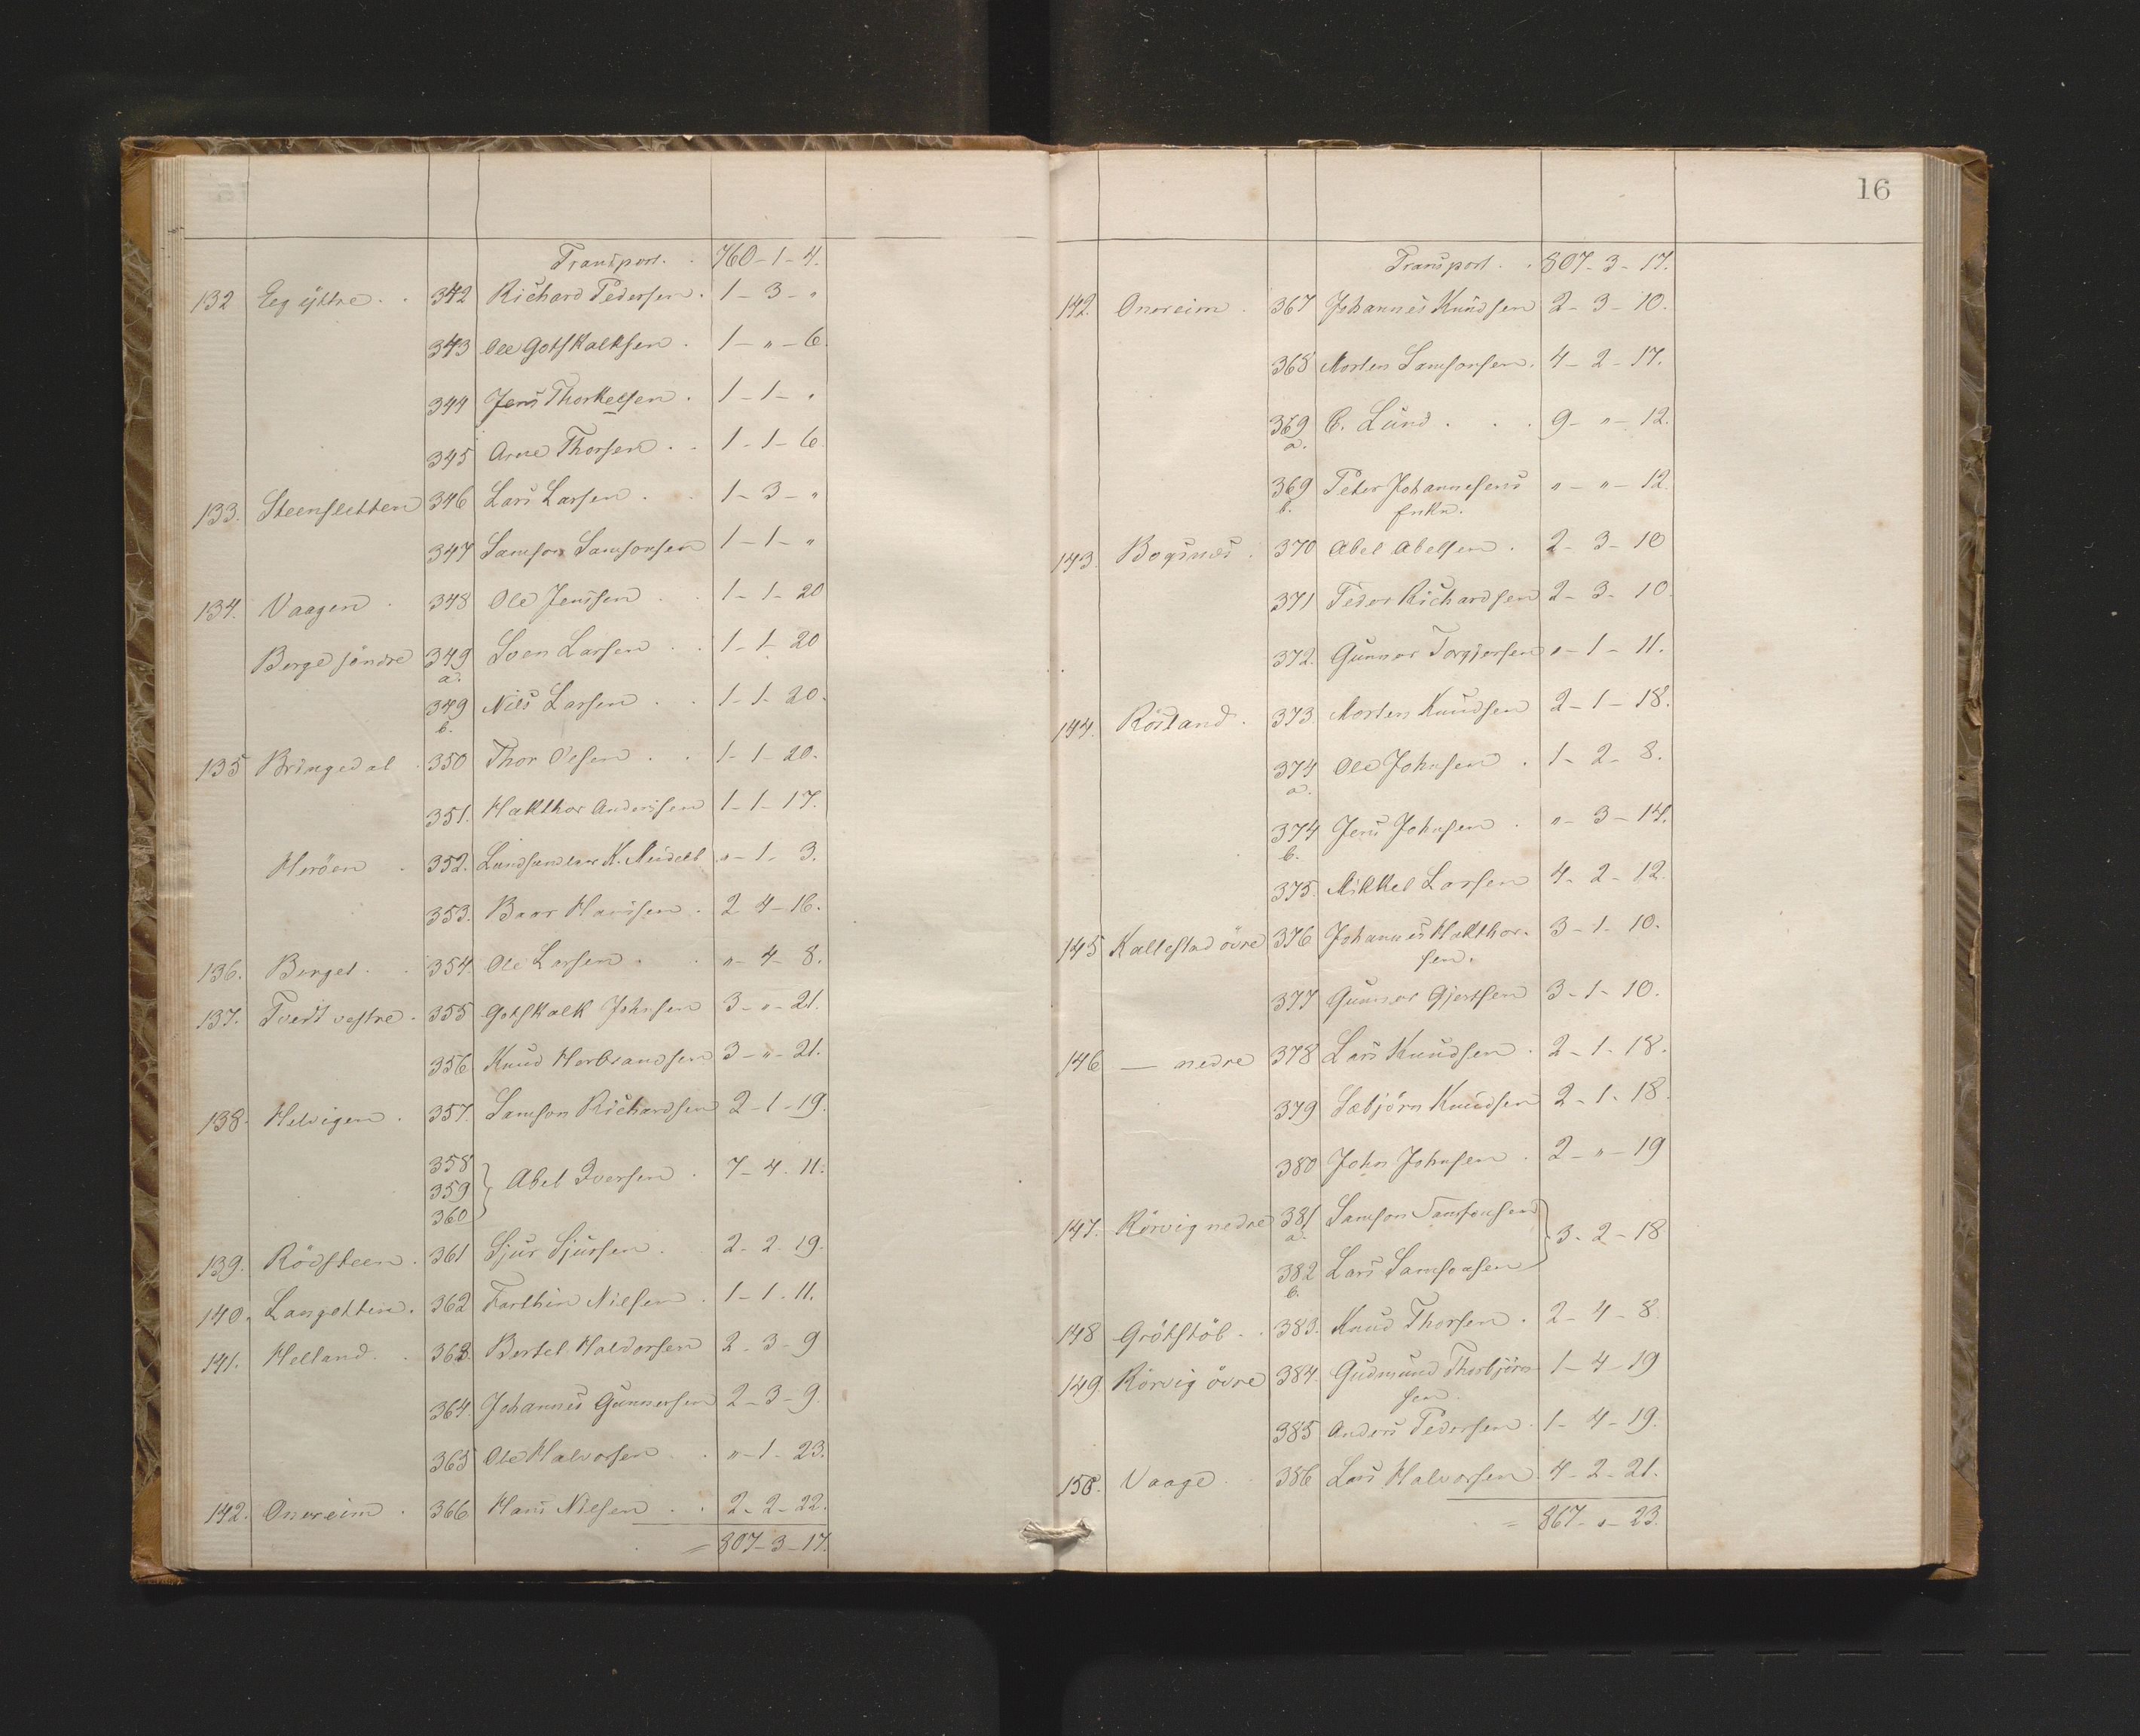 Transport. . 760-1-4.
132 Eeg yttre. . 342 Richard Pedersen. 1-3-"
343 Ole Gotskalksen. 1-"-6.
344 Jens Thorkelsen. 1-1-"
345 Arne Thorsen. . 1-1-6.
133. Steensletten 346 Lars Larsen. . 1-3-"
347 Samson Samsonsen 1-1-"
134. Vaagen . 348 Ole Jensen . . 1-1-20
Berge söndre 349 Sven Larsen . . 1-1-20
a.
349 Nils Larsen . . 1-1-20.
b.
135 Bringedal . 350 Thor Olsen . . 1-1-20.
351. Hakthor Andersen 1-1-17.
Heröen . 352. Landhandler K. Meidell "-1-3.
353. Baar Hansen . 2-4-16.
136. Berget . . 354 Ole Larsen . . "-4-8.
137. Tvedt vestre . 355 Gotskalk Johnsen 3-"-21.
356 Knud Herbrandsen 3-"-21.
138. Helvigen . 357. Samson Richardsen 2-1-19.
358
359 } Abel Iversen . 7-4-11.
360
139. Rödsteen . 361 Sjur Sjursen . . 2-2-19.
140. Langettin. 362 Farthin Nilsen . 1-1-11.
141. Helland . . 363. Bertel Haldorsen 2-3-9
364. Johannes Gunnersen 2-3-9.
365 Ole Halvorsen . . "-1-23.
142. Onereim . 366 Hans Nilsen . . 2-2-22.
= 807-3-17.
16
Transport . . 807-3-17.
142. Onereim . 367 Johannes Knudsen 2-3-10.
368 Morten Samsonsen. 4-2-17.
369 C. Lund . . . 9-"-12.
a.
369 Peter Johannesens "-"-12.
b. enke.
143. Bogsnes . 370 Abel Abelsen . 2-3-10
371 Peder Richardsen 2-3-10.
372. Gunnar Torgjersen "-1-11.
144. Rösland . 373 Morten Knudsen 2-1-18.
374 Ole Johnsen . 1-2-8.
a.
374 Jens Johnsen . "-3-14.
b.
375. Mikkel Larsen 4-2-12.
145 Kallestad övre 376 Johannes Hakthor- 3-1-10.
sen.
377 Gunnar Gjertsen 3-1-10.
146 — nedre 378 Lars Knudsen . 2-1-18.
379 Sæbjörn Knudsen 2-1-18.
380 John Johnsen . 2-"-19
147. Rörvig nedre 381 Samson Samsonsen
a. } 3-2-18
382 Lars Samsonsen
b.
148 Grötstöb . . 383. Knud Thorsen . 2-4-8.
149. Rörvig övre 384. Gudmund Thorbjörn- 1-4-19
sen.
385 Anders Pedersen . 1-4-19.
150. Vaage . . 386 Lars Halvorsen 4-2-21.
= 867-"-23.